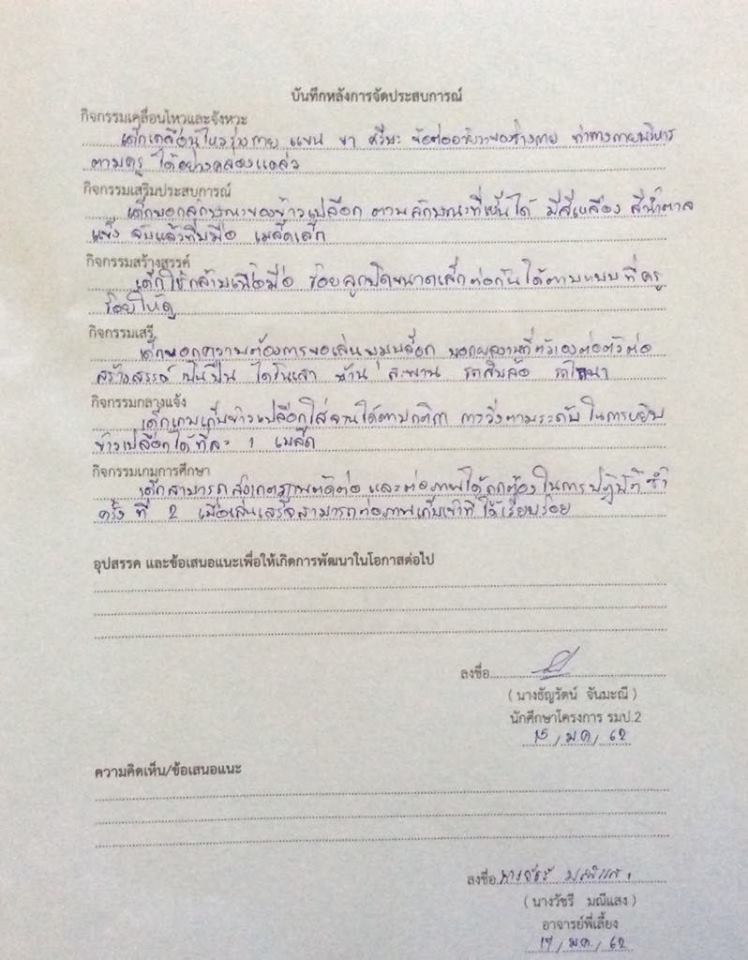 บันทึกหลังการจัดประสบการณ์
กิจกรรมเคลื่อนไหวและจังหวะ
เด็กเคลื่อนไหวร่างกาย แขน ขา ศรีษะ ข้อต่ออวัยวะของร่างกาย ท่าทางกายบริหาร
ตามครู ได้อย่างคล่องแคล่ว
กิจกรรมเสริมประสบการณ์
เด็กบอกลักษณะของข้าวเปลือก ตามลักษณะที่เห็นได้ มีสีเหลือง สีน้ำตาล
แข็ง จับแล้วทิ่มมือ เมล็ดเล็ก
กิจกรรมสร้างสรรค์
เด็กใช้กล้ามเนื้อมือ ร้อยลูกปัดขนาดเล็กต่อกันได้ตามแบบที่ครู
ร้อยให้ดู
กิจกรรมเสรี
เด็กบอกความต้องการขอเล่นมุมบล็อก บอกผลงานที่ตัวเองต่อตัวต่อ
สร้างสรรค์ เป็นปืน ไดโนเสา บ้าน สะพาน รถสิบล้อ รถไถนา
กิจกรรมกลางแจ้ง
เด็กเกมเก็บข้าวเปลือกใส่จานได้ตามกติกา การวิ่งตามระดับ ในการหยิบ
ข้าวเปลือกได้ทีละ 1 เมล็ด
กิจกรรมเกมการศึกษา
เด็กสามารถสังเกตภาพตัดต่อ และต่อภาพได้ถูกต้องในการปฏิบัติซ้ำ
ครั้งที่ 2 เมื่อเล่นเสร็จสามารถต่อภาพเก็บเข้าที่ได้เรียบร้อย
อุปสรรค และข้อเสนอแนะเพื่อให้เกิดการพัฒนาในโอกาสต่อไป
ลงชื่อ
( นางธัญรัตน์ จันมะณี )
นักศึกษาโครงการ รมป.2
15 / ม.ค / 62
ความคิดเห็น/ข้อเสนอแนะ
ลงชื่อ
( นางวัชรี มณีแสง )
อาจารย์พี่เลี้ยง
/ ม.ค / 62